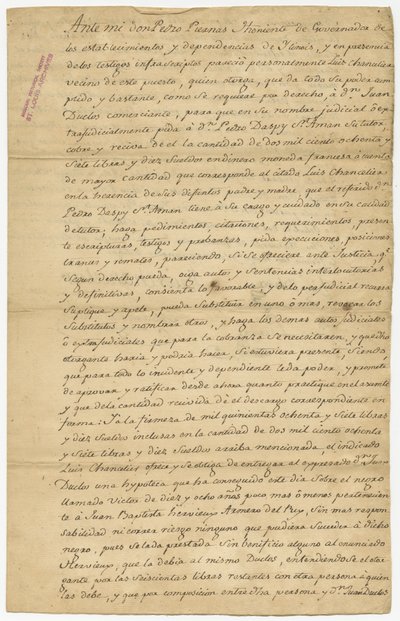 MISSOURI HISTORICAL SOCIETY
ST. LOUIS ARCHIVES
Ante mi don Pedro Piernas Theniente de Governador de
los establecimientos y dependencias de Ylinois, y en presencia
de los testigos infraescriptos pareció personalmente Luis Chancelier
vecino de este puesto, quien otorga, que da todo su poder cum
plido y bastante, como se requiere por derecho, à dn. Juan
Duclos comerciante, para que en su nombre judicial ò ex
trajudicialmente pida à dn. Pedro Daspy St. Aman su tutor,
cobre y reciva de el la cantidad de dos mil ciento ochenta y
siete libras y diez sueldos en dinero moneda francesa à cuenta
de mayor cantidad que corresponde al citado Luis Chancelier
en la herencia de sus difuntos padre y madre, que el referido dn.
Pedro Daspy St. Aman tiene à su cargo y cuidado en su calidad
de tutor; haga pedimentos, citaciones, requerimientos, presen
te escripturas, testigos y probanzas, pida execuciones, posiciones,
trances y remates, pareciendo, si se ofreciere ante Justicia qe.
segun derecho pueda, oiga autos y sentencias interlocutorias
y definitivas, consienta lo favorable y de lo perjudicial recurra
suplique y apele, pueda substituir en uno ò mas, revocar los
substitutos y nombrar otros, y haga los demas autos judiciales
ò extrajudiciales que para la cobranza se necesitaren, y que dho
otorgante haria y podria hacer, si estuviera presente, siendo,
que para todo lo incidente y dependiente le da poder, y promete
de aprovar y ratificar desde ahora quanto practique en el asumto
y que de la cantidad recivida dè el descargo correspondiente en
forma: Y a la firmeza de mil quinientas ochenta y siete libras
y diez sueldos inclusas en la cantidad de dos mil ciento ochenta
y siete libras y diez sueldos arriba mencionada, el indicado
Luis Chancelier ofrece y se obliga de entregar al expresado dn. Juan
Duclos una hypoteca que ha conseguido este dia sobre el negro
llamado Victor de diez y ocho años poco mas ò menos pertenecien
te à Juan Baptista Hervieux Armero del Rey, sin mas respon
sabilidad ni correr riezgo ninguno que pudiera suceder à dicho
negro, pues se la da prestada sin beneficio alguno al enunciado
Hervieux, que la debia al mismo Duclos, entendiendose el otor
gante por las seiscientas libras restantes con otra persona à quien
las debe, y que por composicion entre dha persona y dn. Juan Duclos